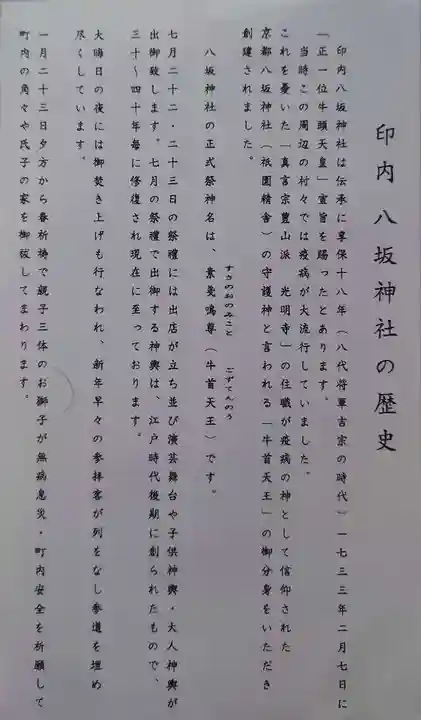 印内八坂神社の歴史
印内八坂神社は伝承に享保十八年（八代将軍吉宗の時代）一七三三年二月七日に
「正一位牛頭天皇」宣旨を賜ったとあります。
当時この周辺の村々では疫病が大流行していました。
これを憂いた「真言宗豊山派 光明寺」の住職が疫病の神として信仰された
京都八坂神社（祇園精舎）の守護神と言われる「牛首天王」の御分身をいただき
創建されました。
八坂神社の正式祭神名は、素戔嗚尊（牛首天王）です。
すさのおのみこと ごずてんのう
七月二十二・二十三日の祭禮には出店が立ち並び演芸舞台や子供神輿・大人神輿が
出御致します。七月の祭禮で出御する神輿は、江戸時代後期に創られたもので、
三十～四十年毎に修復され現在に至っております。
大晦日の夜には御焚き上げも行なわれ、新年早々の参拝客が列をなし参道を埋め
尽くしています。
一月二十三日夕方から春祈祷で親子三体のお獅子が無病息災・町内安全を祈願して
町内の角々や氏子の家を御祓してまわります。